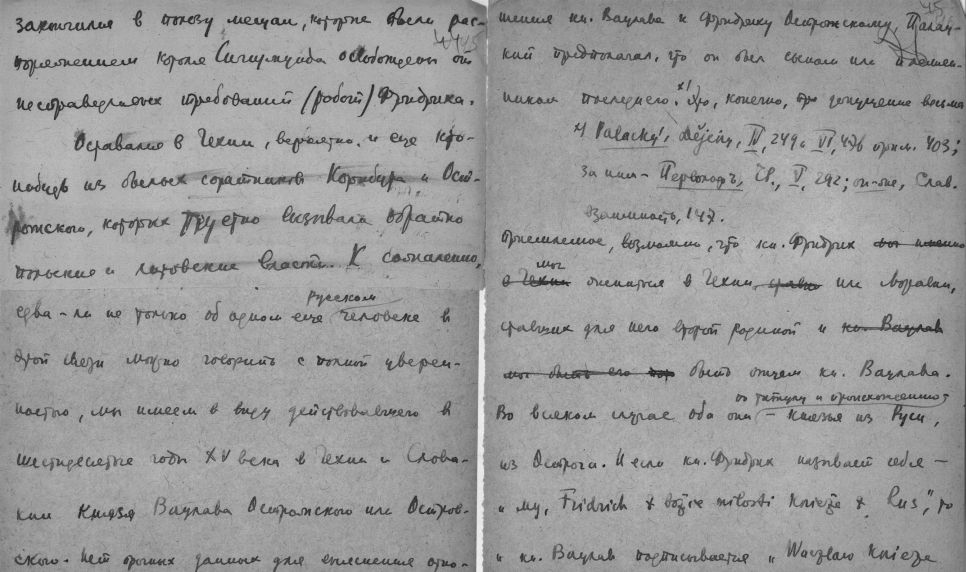 закончился в пользу мещан, которые были рас-
поряжением короля Сигизмунда освобождены от
несправедливых требований (работ) Фридриха.
Оставался в Чехии, вероятно, и еще кто-
нибудь из бывших соратников Корибута и Ост-
рожского, которых тщетно вызывали обратно
польские и литовские власти. К сожалению,
едва-ли не только об одном еще русском человеке в
этой связи можно говорить с полной уверен-
ностью, мы имеем в виду действовавшего в
шестидесятые годы XV века в Чехии и Слова-
кии князя Вацлава Острожского или Остров-
ского. Нет прочных данных для выяснения отно-
45
шения кн. Вацлава к Фридриху Острожскому, Палац-
кий предполагал, что он был сыном или племян-
ником последнего. х) Это, конечно, допущение весьма
х) Palacký, Dějiny, IV, 249, VI, 476 прим. 403;
за ним - Первольф, V, 292; он-же, Слав.
взаимность, 147.
приемлемое, возможно, что кн. Фридрих был именно
в Чехии мог жениться в Чехии, или Моравии,
ставших для него второй родиной и кн. Вацлав
мог быть его быть отцом кн. Вацлава.
по титулу и происхождению
Во всяком случае оба они - князья из Руси,
из Острога. И если кн. Фридрих называет себя -
"my, Fridrich z božie milosti knieže z Rus", то
кн. Вацлав подписывается "Waczlaw knieze